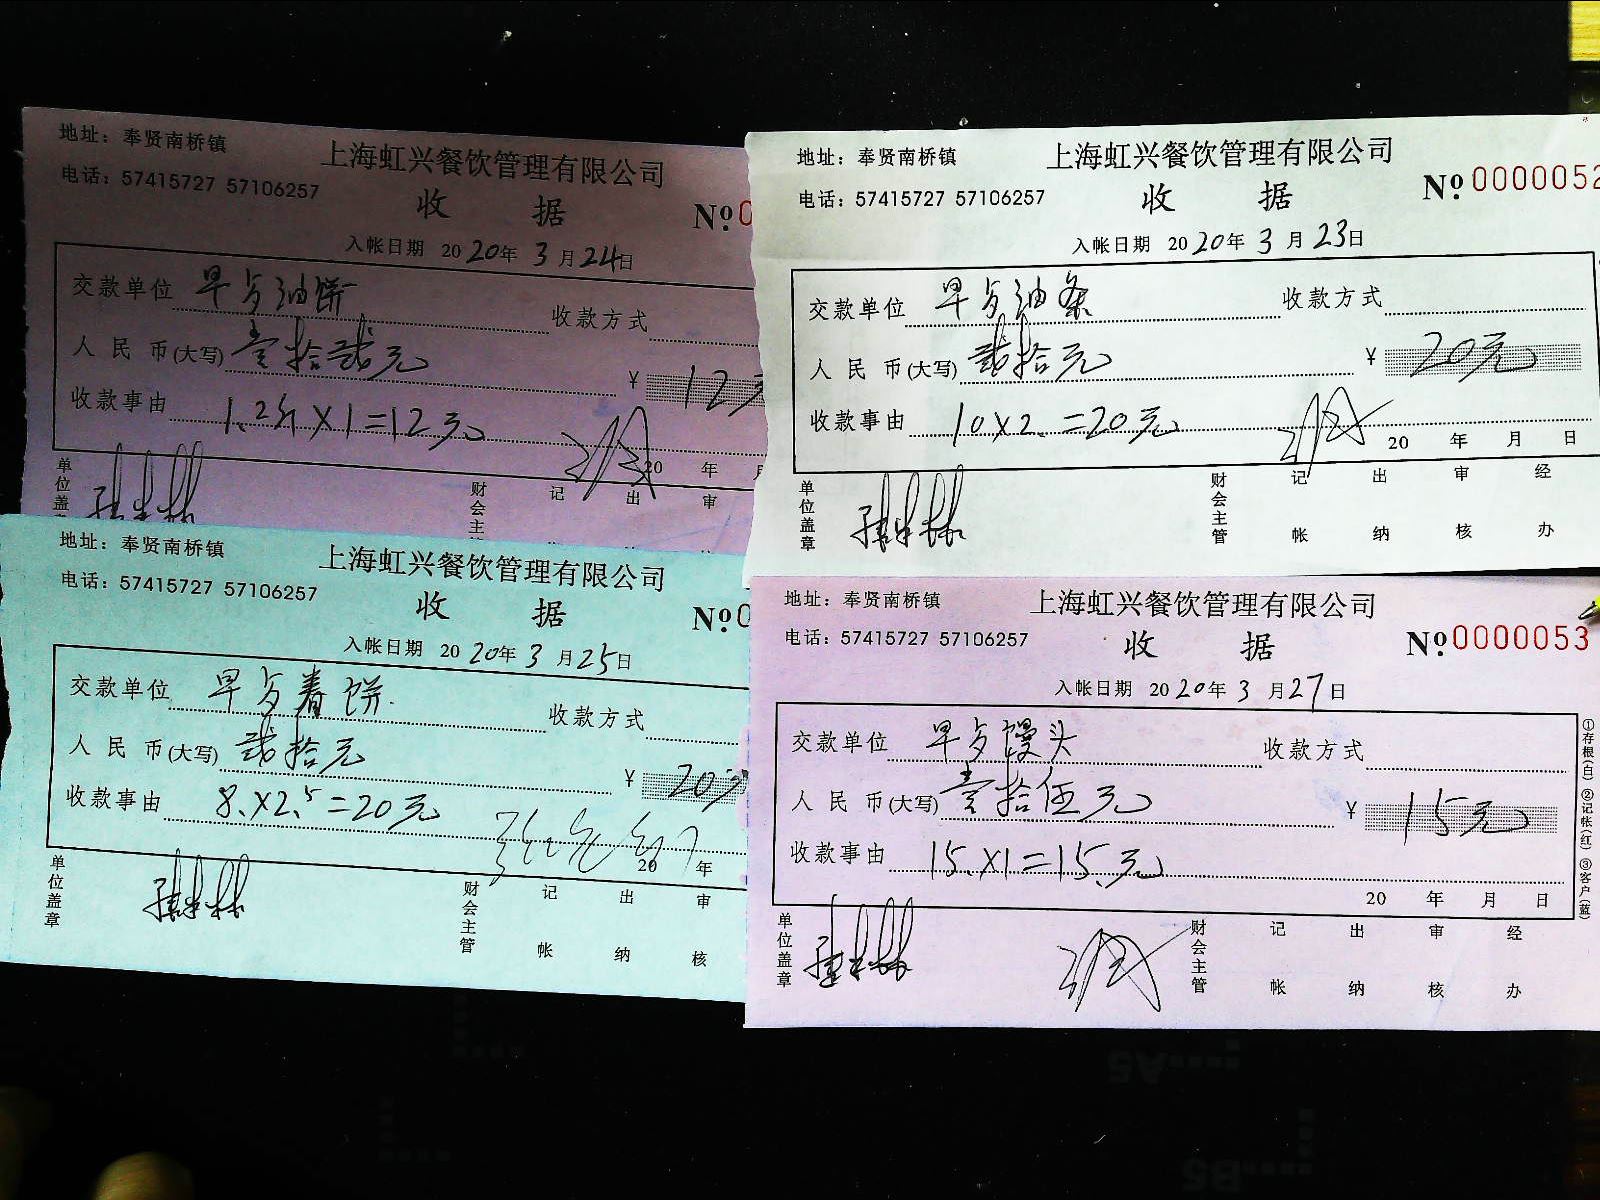 地址：奉贤南桥镇
上海虹兴餐饮管理有限公司
电话：57415727 57106257
收 据
№0
入帐日期 2020年3月24日
交款单位 早点油饼 收款方式
人民币(大写) 壹拾贰元 ¥ 12元
收款事由
20 年 月
单位盖章 财会主管 记 出 审
地址：奉贤南桥镇
上海虹兴餐饮管理有限公司
电话：57415727 57106257
收 据
№0000052
入帐日期 2020年3月23日
交款单位 早点油条 收款方式
人民币(大写) 贰拾元 ¥ 20元
收款事由 10×2.=20元
20 年 月 日
单位盖章 财会主管 记帐 出纳 审核 经办
地址：奉贤南桥镇
上海虹兴餐饮管理有限公司
电话：57415727 57106257
收 据
№0
入帐日期 2020年3月25日
交款单位 早点春饼 收款方式
人民币(大写) 贰拾元 ¥ 20元
收款事由 8.×2.5=20元
20 年
单位盖章 财会主管 记帐 出纳 审核
地址：奉贤南桥镇
上海虹兴餐饮管理有限公司
电话：57415727 57106257
收 据
№0000053
入帐日期 2020年3月27日
交款单位 早点馒头 收款方式
人民币(大写) 壹拾伍元 ¥ 15元
收款事由 15.×1=15.元
20 年 月 日
单位盖章 财会主管 记帐 出纳 审核 经办
①存根(白) ②记帐(红) ③客户(蓝)
A5
B5